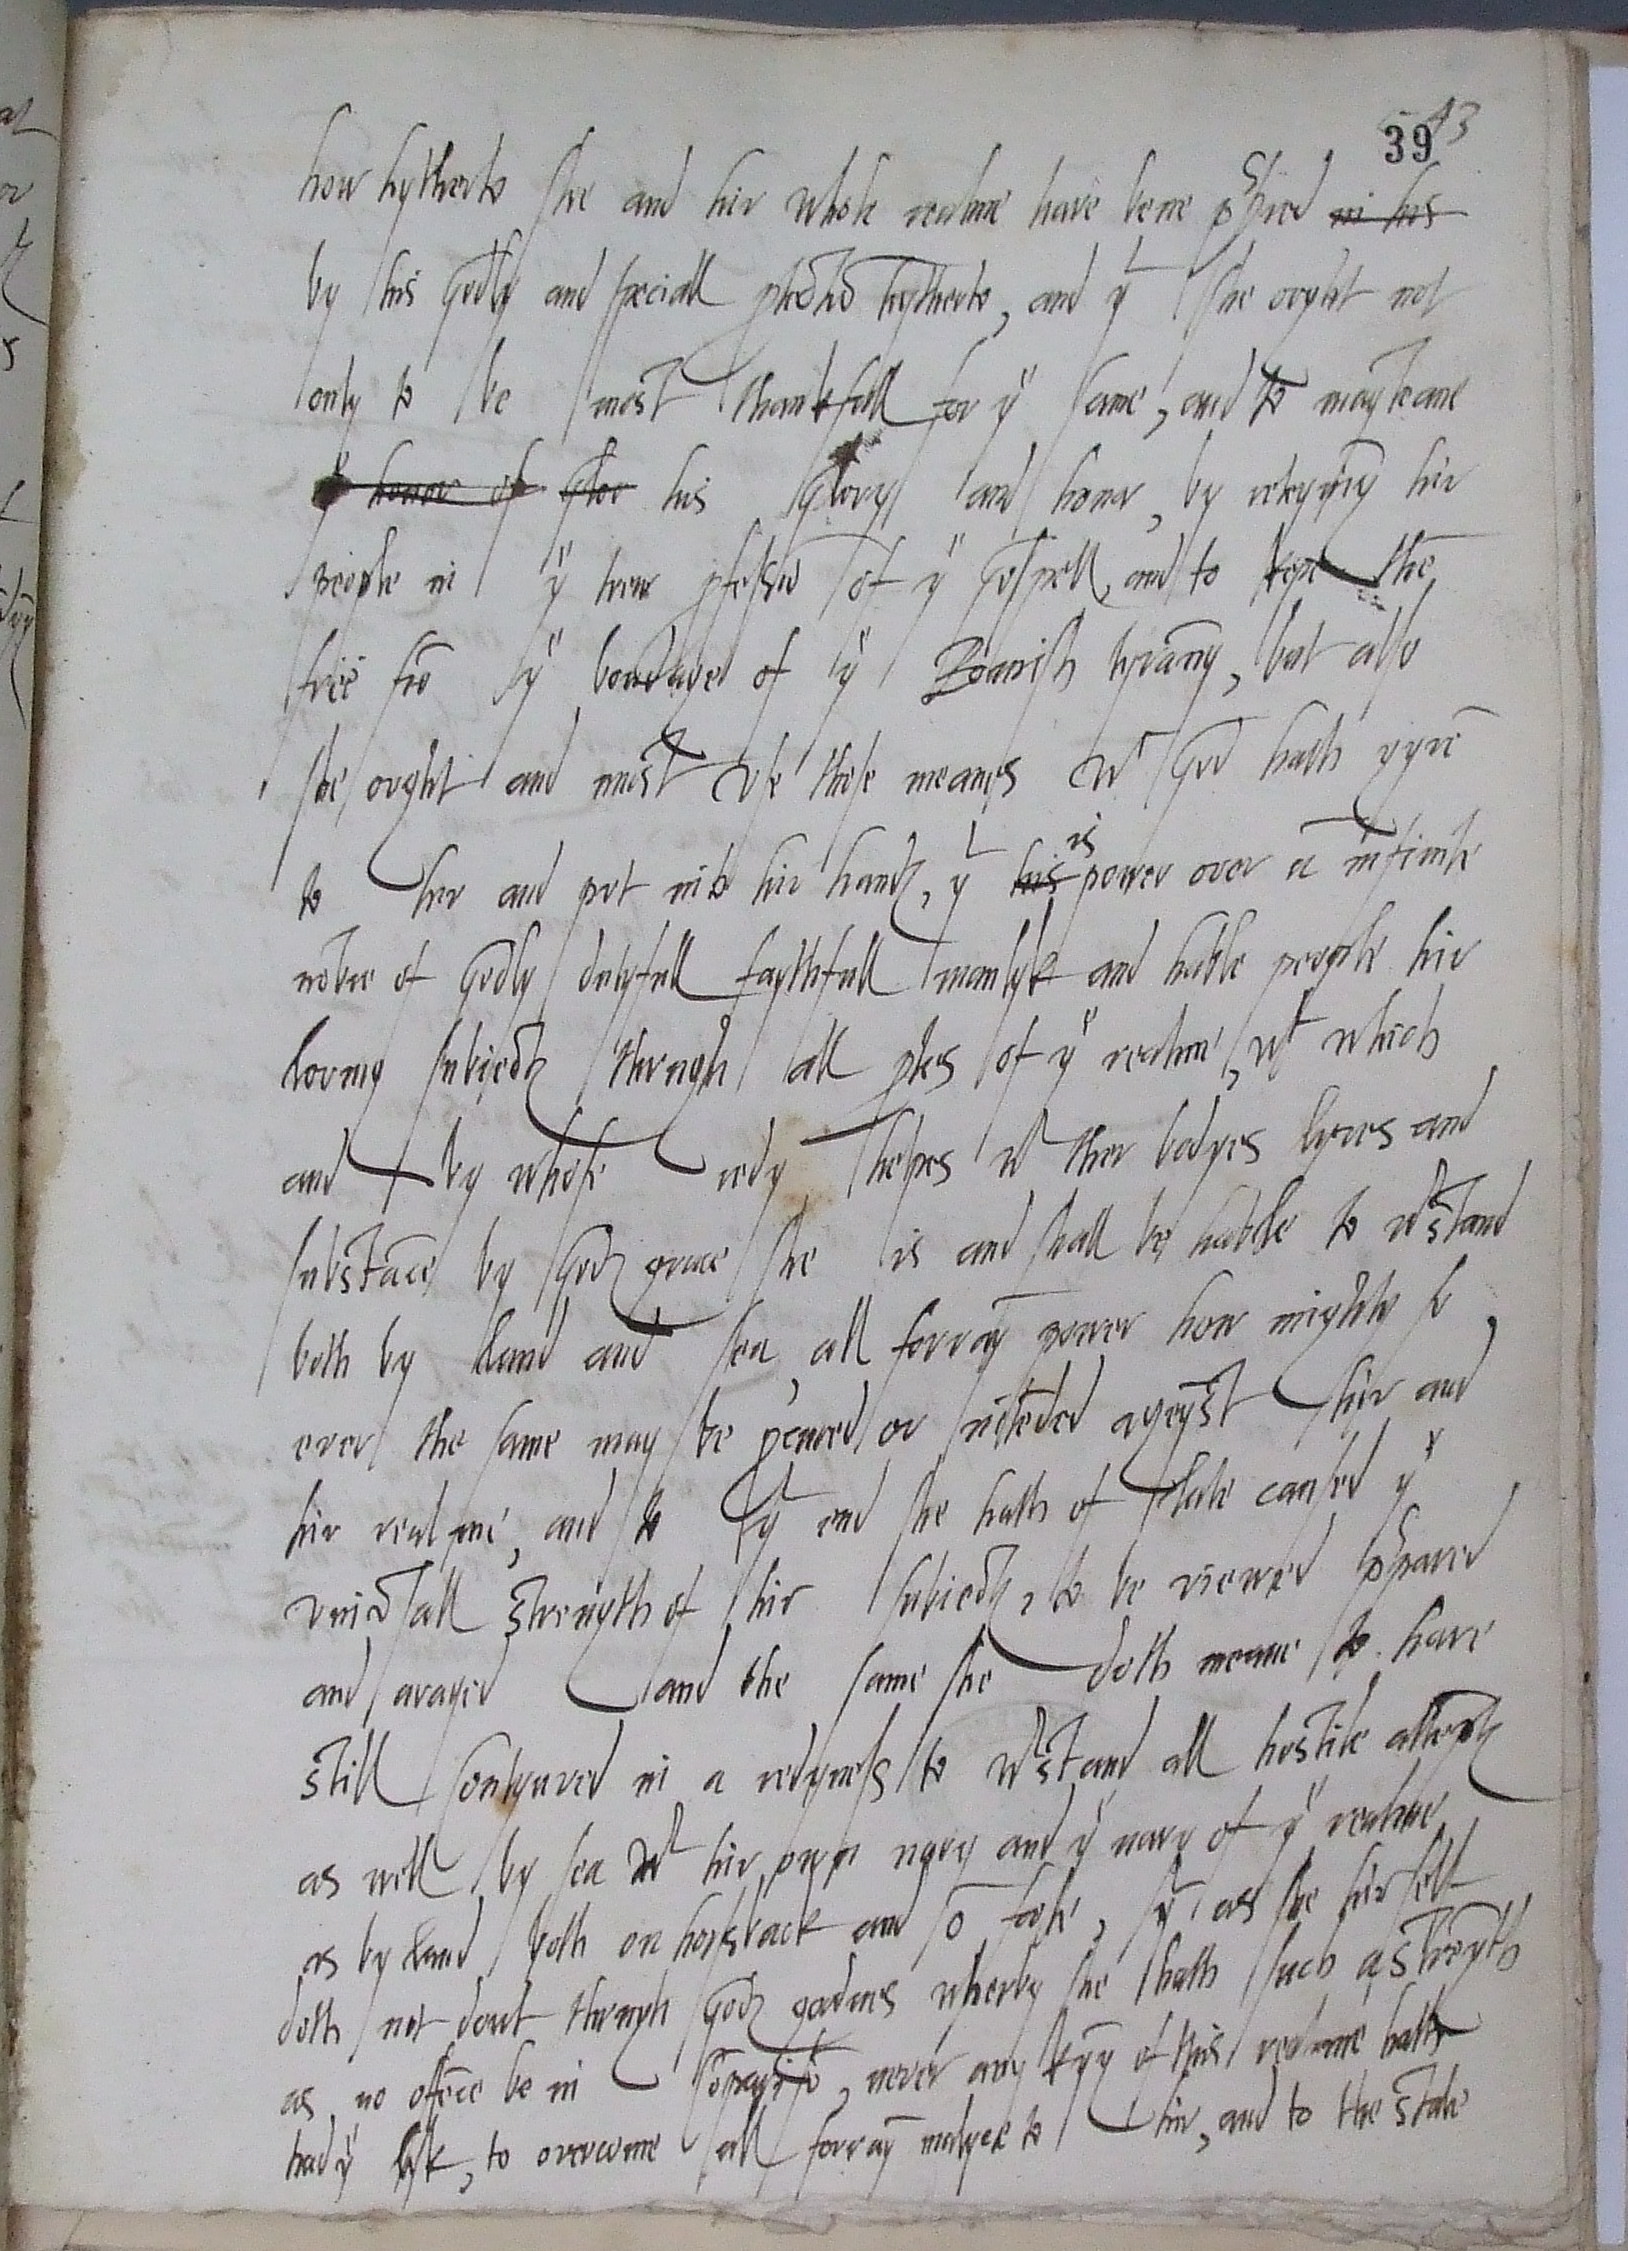 39 43
how hytherto she and hir whole realme have bene pṣved in his
by his godly and speciall ptectiō hytherto, and yt she ought not
only to be most thankfull for ye same, and to mayteane
ye honor of glor his glory and honor, by reteyni̅g hir
people in ye trew pfessiō of ye gospell, and to kepe the̅
free fro̅ ye bondage of ye Romish tyra̅ny, but also
she ought and must vse those meanes wch God hath gyve̅
to her and put into hir handes, yt his is power over a̅ infinite
no̅bre of godly dutyfull faythfull manlyk and hable people hir
loving subiectes through all ptes of ye realme, wt which
and by whose redy helpes wt ther bodyes lyves and
substa̅ce by Gods grace she is and shall be hable to wtstand
both by land and sea, all forray̅ power how mighty so
ever the same may be ppared or inte̅ded ageynst hir and
hir realme, and to yt end she hath of late caused ye
vniversall strength of hir subiectes, to be viewed ppared
and arayed and the same she doth meane to have
still contynued in a redyness to wtstand all hostile attemptes
as well by sea wt hir own navy and ye navy of ye realme
as by land both on horsback and o̅ foote, yt as she hir self
doth not dout through Gods goodnes wherby she hath such a strength
as no offe̅ce be in co̅pariso̅, never any ky̅g of this realme hath
had ye lyk, to overcome all forray̅ malyce to hir, and to the state